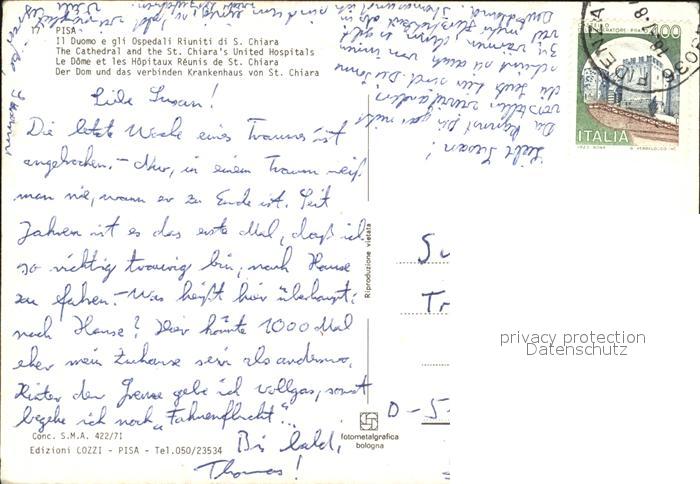 PISA
Il Duomo e gli Ospedali Riuniti di S. Chiara
The Cathedral and the St. Chiara's United Hospitals
Le Dôme et les Hôpitaux Réunis de St. Chiara
Der Dom und das verbinden Krankenhaus von St. Chiara
Liebe Susan!
Die letzte Woche eines Traumes ist
angebrochen. - Nur, in einem Traum weiß
man nie, wann er zu Ende ist. Seit
Jahren ist es das erste Mal, daß ich
so richtig traurig bin, nach Hause
zu fahren. - Was heißt hier überhaupt:
nach Hause? Hier könnte 1000 Mal
eher mein Zuhause sein als anderswo.
Hinter der Grenze gebe ich Vollgas, sonst
begehe ich noch „Fahnenflucht".
Bis bald,
Thomas!
Conc. S.M.A. 422/71
Edizioni COZZI - PISA - Tel. 050/23534
Riproduzione vietata
fotometalgrafica
bologna
Liebe Susan!
Du kannst Dir gar nicht
vorstellen
die Leute hier sind. Die Sonne
scheint
Deutschland.
ITALIA
FIDENZA
Su
Tr
D-5
privacy protection
Datenschutz